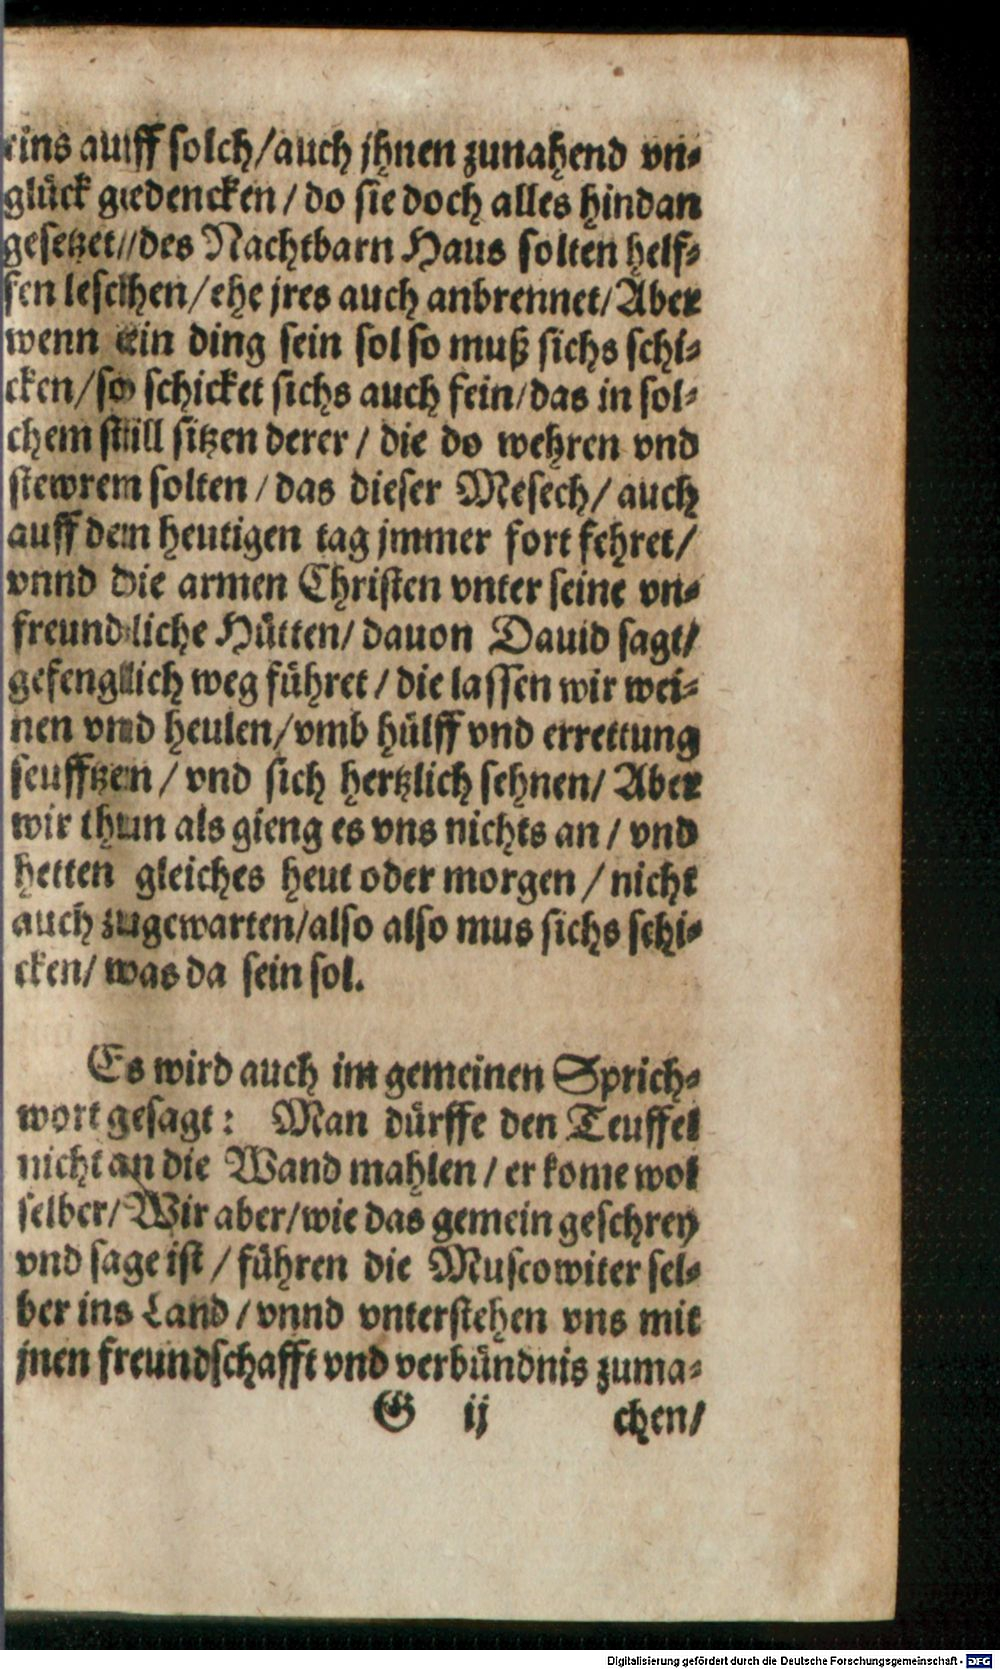 eins auff solch/auch jhnen zunahend vn⸗
glück gedencken / do sie doch alles hindan
gesetzet//des Nachtbarn Haus solten helf⸗
fen leschen/ehe jres auch anbrennet/Aber
wenn ein ding sein sol so muß sichs schi⸗
cken/so schicket sichs auch fein/das in sol⸗
chem still sitzen derer / die do wehren vnd
stewrem solten / das dieser Mesech/ auch
auff den heutigen tag jmmer fort fehret/
vnnd die armen Christen vnter seine vn⸗
freundliche Hütten/ dauon Dauid sagt/
gefenglich weg führet / die lassen wir wei⸗
nen vnd heulen/vmb hülff vnd errettung
seufftzen / vnd sich hertzlich sehnen/ Aber
wir thun als gieng es vns nichts an / vnd
hetten gleiches heut oder morgen / nicht
auch zugewarten/also also mus sichs schi⸗
cken/ was da sein sol.
Es wird auch im gemeinen Sprich⸗
wort gesagt: Man dürffe den Teuffel
nicht an die Wand mahlen / er kome wol
selber/ Wir aber/wie das gemein geschrey
vnd sage ist / führen die Muscowiter sel⸗
ber ins Land / vnnd vnterstehen vns mit
jnen freundschafft vnd verbündnis zuma⸗
G ij chen/
Digitalisierung gefördert durch die Deutsche Forschungsgemeinschaft - DFG